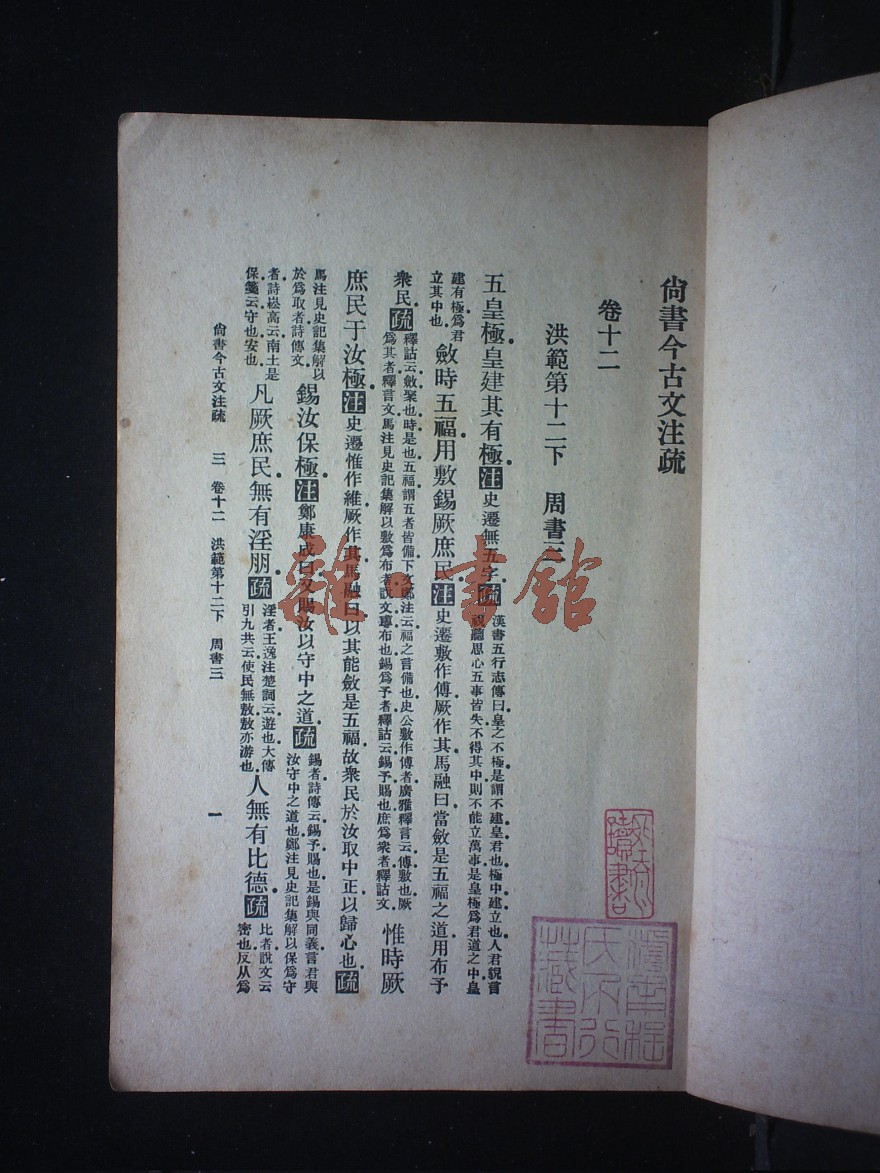 尙書今古文注疏
卷十二
洪範第十二下　周書三
五皇極皇建其有極注史遷無五字疏漢書五行志傳曰皇之不極是謂不建皇君也極中建立也人君貌言
視聽思心五事皆失不得其中則不能立萬事是皇極爲君道之中皇
建有極爲君
立其中也
斂時五福用敷錫厥庶民注史遷敷作傅厥作其馬融曰當斂是五福之道用布予
衆民疏釋詁云斂聚也時是也五福謂五者皆備下文鄭注云福之言備也史公敷作傅者廣雅釋言云傅敷也厥
爲其者釋言文馬注見史記集解以敷爲布者說文尃布也錫爲予者釋詁云錫予賜也庶爲衆者釋詁文
惟時厥
庶民于汝極注史遷惟作維厥作其馬融曰以其能斂是五福故衆民於汝取中正以歸心也疏
馬注見史記集解以
於爲取者詩傳文
錫汝保極注鄭康成曰又賜汝以守中之道疏錫者詩傳云錫予賜也是錫與同義言君與
汝守中之道也鄭注見史記集解以保爲守
者詩崧高云南土是
保箋云守也安也
凡厥庶民無有淫朋疏淫者王逸注楚詞云遊也大傳
引九共云使民無敖敖亦游也
人無有比德疏比者說文云
密也反从爲
尙書今古文注疏　三　卷十二　洪範第十二下　周書三　一
雜·書館
藏書